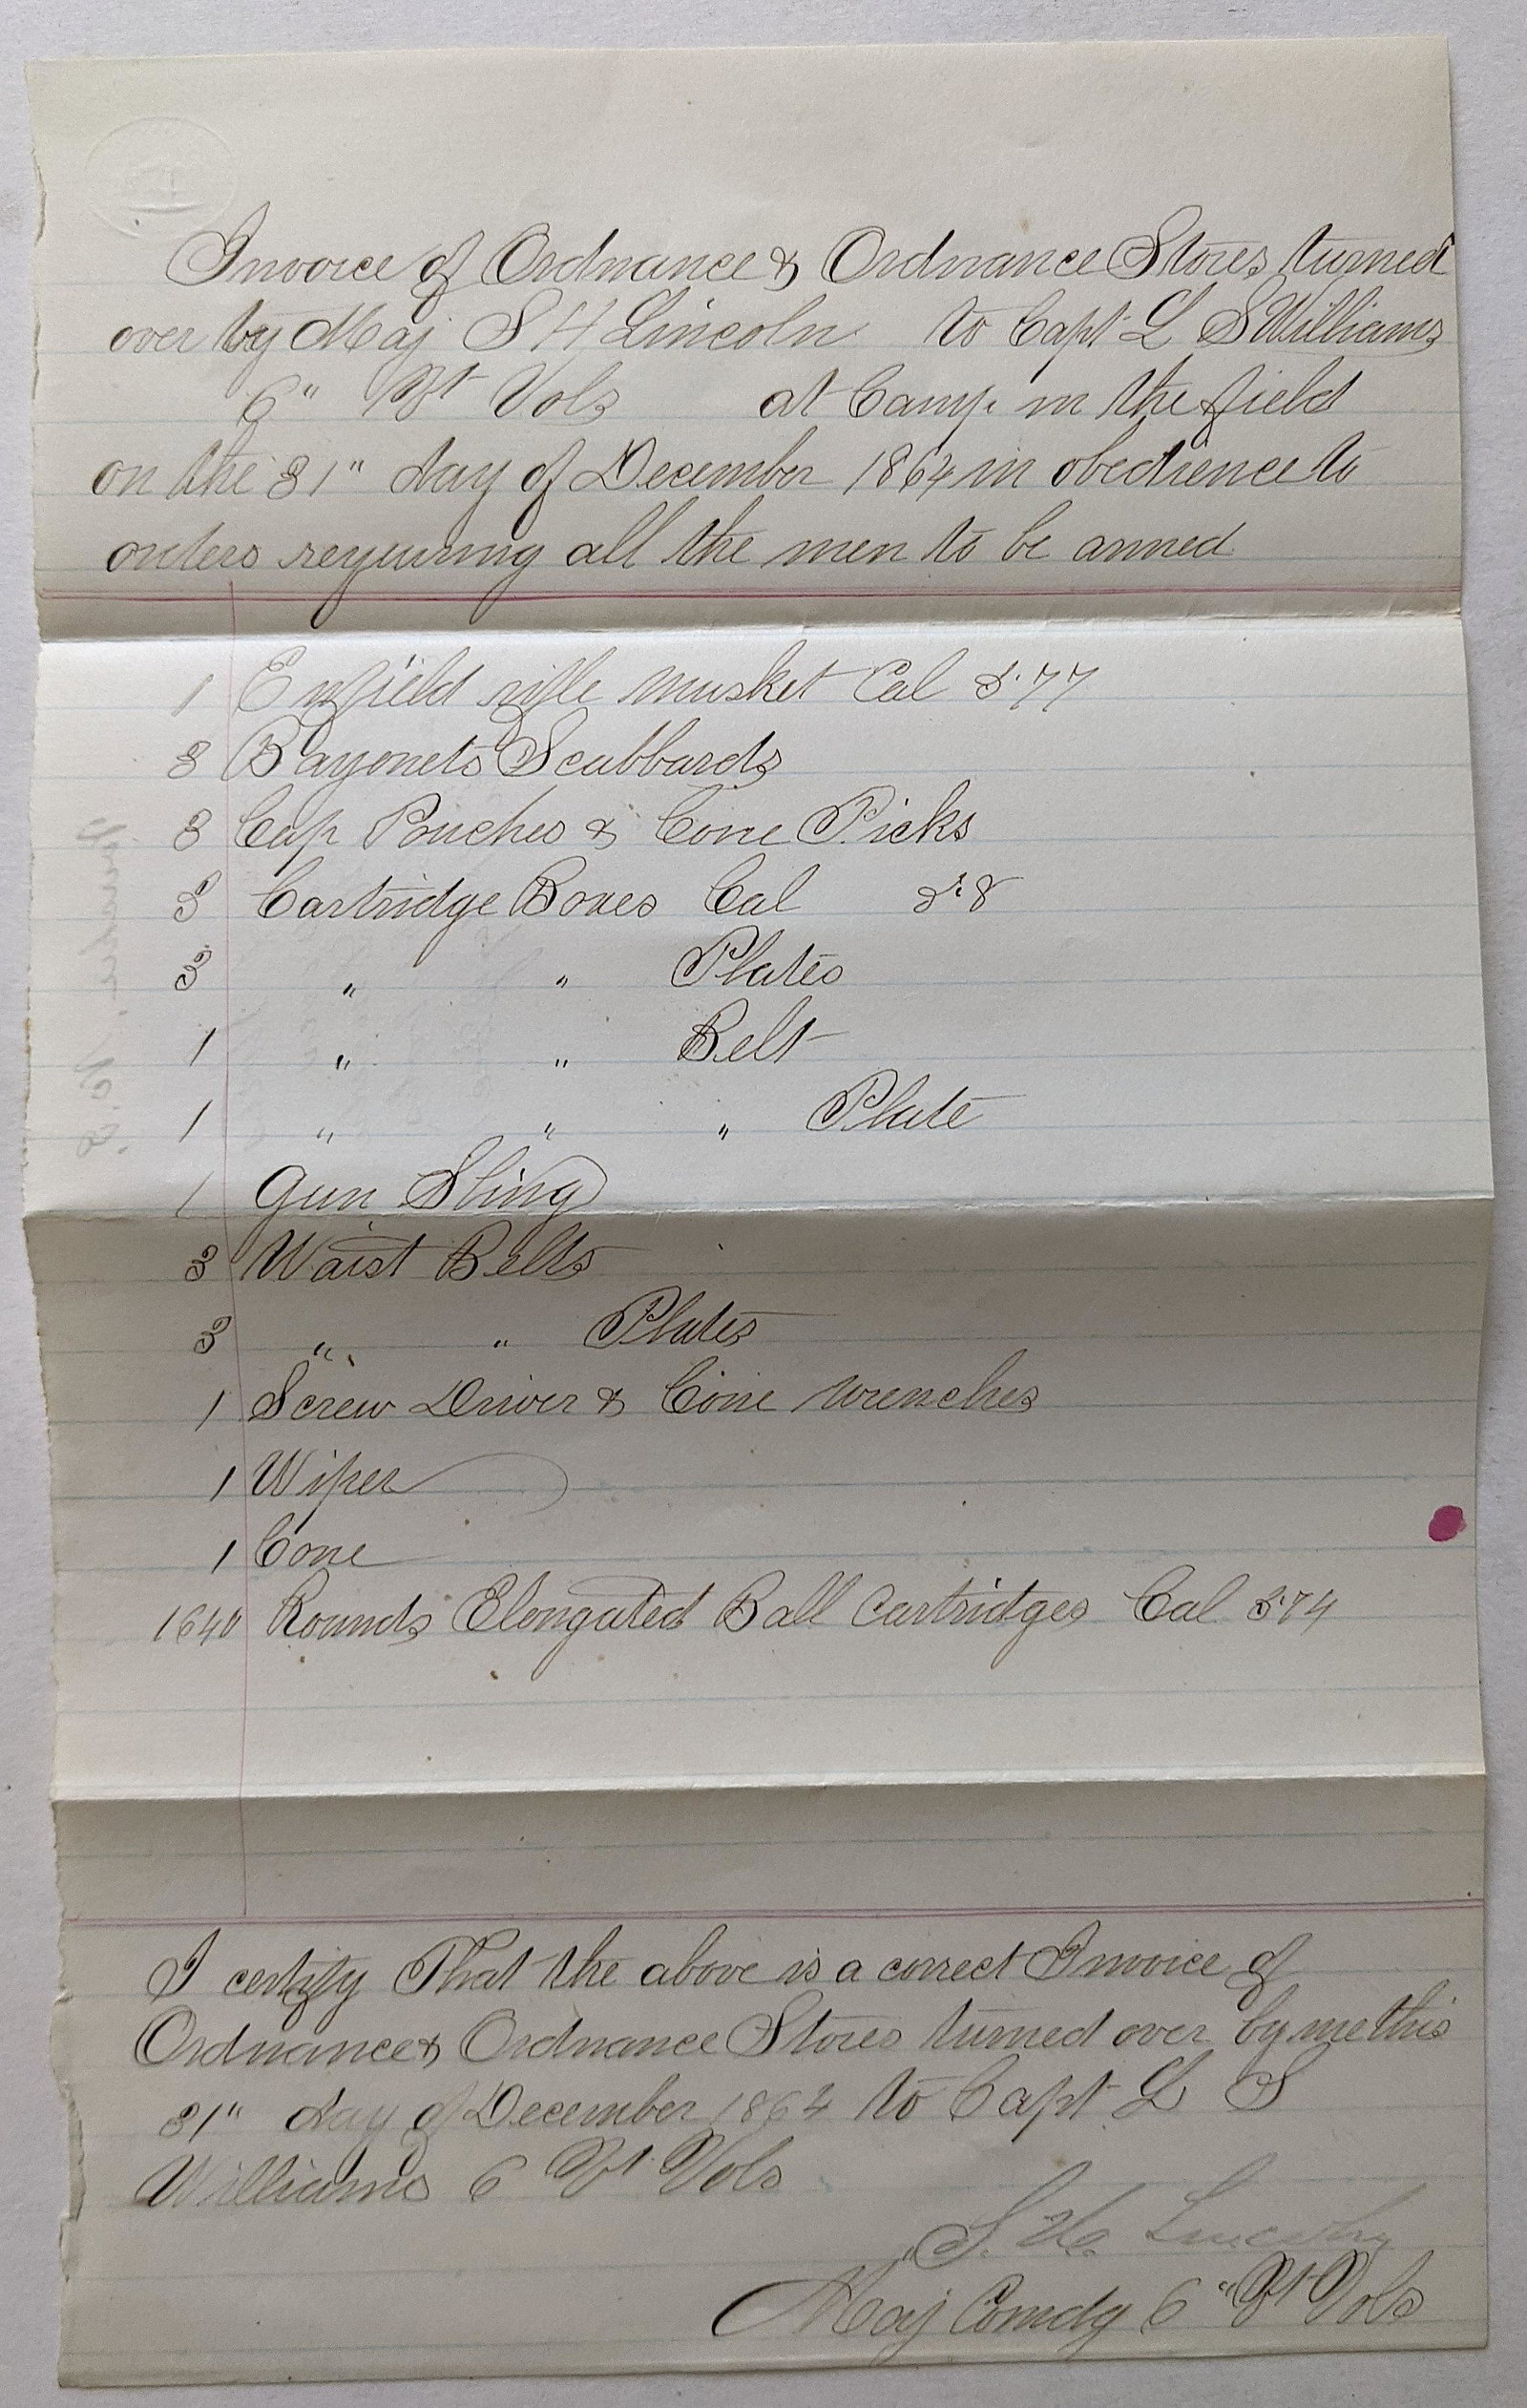 Invoice of Ordnance & Ordnance Stores turned
over by Maj S H Lincoln to Capt L S Williams
6" Vt Vols at Camp in the field
on the 31" day of December 1864 in obedience to
orders requiring all the men to be armed
1 Enfield rifle musket Cal 5.77
3 Bayonets Scabbards
3 Cap Pouches & Cone Picks
3 Cartridge Boxes Cal 5.8
3 " " Plates
1 " " Belt
1 " " " Plate
1 Gun Sling
3 Waist Belts
3 " " Plates
1 Screw Driver & Cone wrenches
1 Wiper
1 Cone
1640 Rounds Elongated Ball Cartridges Cal 574
I certify That the above is a correct Invoice of
Ordnance & Ordnance Stores turned over by me this
31" day of December 1864 to Capt L S
Williams 6 Vt Vols
S. H. Lincoln
Maj Comdg 6" Vt Vols